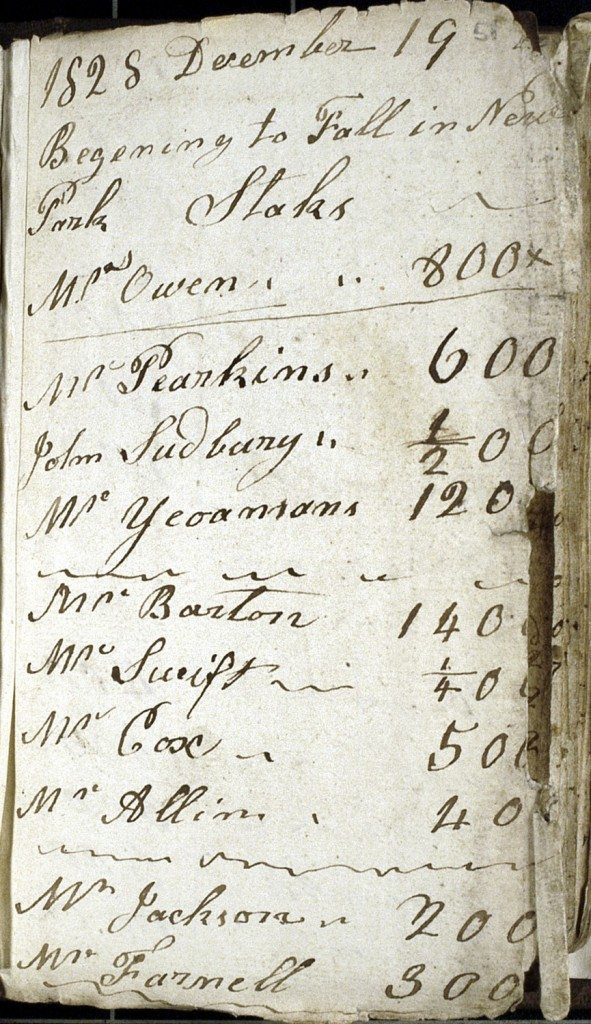 1828 December 19
51
Begening to Fall in New
Park Staks
Mrs Owen 800x
Mr Pearkins 600
John Sudbury 1/2 00
Mr Yeoamans 120
Mr Barton 140
Mr Swift 1/4 00
Mr Cox 500
Mr Allim 40
Mr Jackson 200
Mr Farnell 300